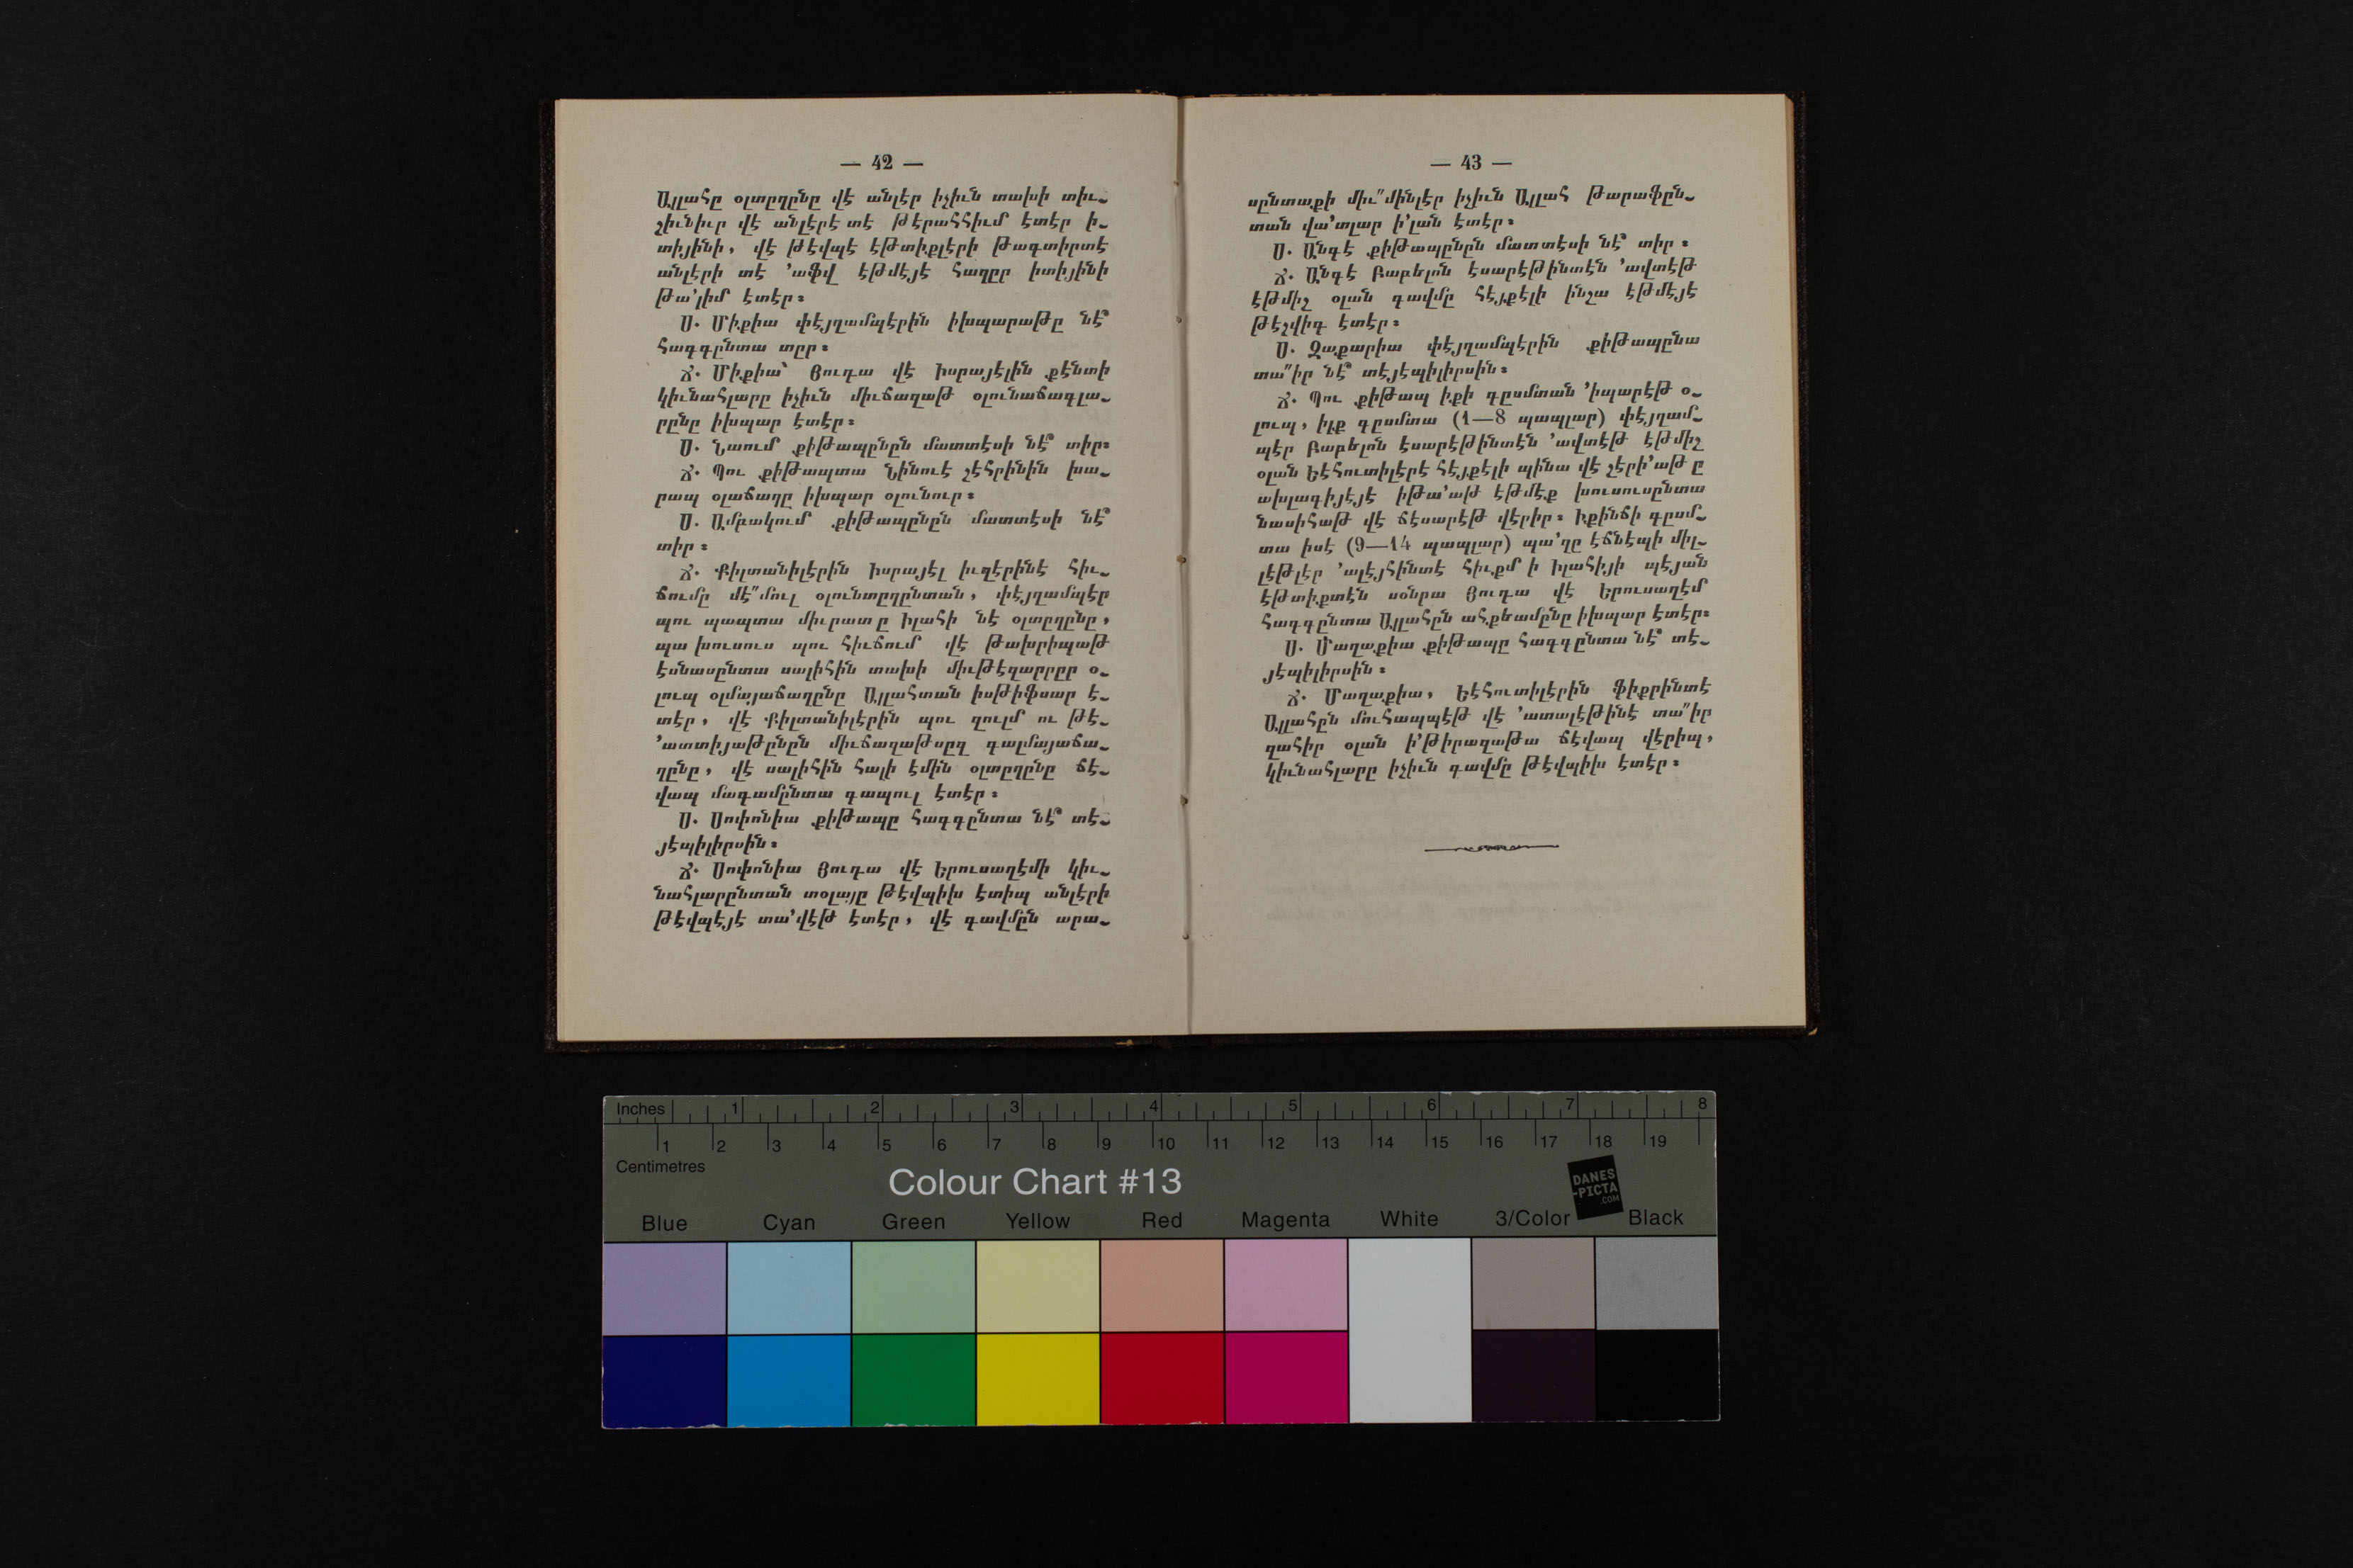 — 42 —
Ալլահը օլտըղընը վէ անլէր իչիւն տախի տիւ֊
շիւնիւր վէ անլէրէ տէ թէրահհիւմ էտէր ի֊
տիյինի, վէ թէվպէ էթտիքլէրի թագտիրտէ
անլէրի տէ ՚աֆվ էթմէյէ հաղըր իտիյինի
թա՚լիմ էտէր։
Ս. Միքիա փէյղամպէրին իխպարաթը նէ՞
հագգընտա տըր։
Ճ. Միքիա՝ Յուդա վէ Իսրայէլին քէնտի
կիւնահլարը իչիւն միւճաղաթ օլունաճագլա֊
րընը իխպար էտէր։
Ս. Նաում քիթապընըն մատտէսի նէ՞ տիր։
Ճ. Պու քիթապտա Նինուէ շէհրինին խա֊
րապ օլաճաղը իխպար օլունուր։
Ս. Ամբակում քիթապընըն մատտէսի նէ՞
տիր։
Ճ. Քիլտանիլէրին Իսրայէլ իւզէրինէ հիւ֊
ճումը մէ՛՛մուլ օլունտըղընտան, փէյղամպէր
պու պապտա միւրատ ը իլահի նէ օլտըղընը,
պա խուսուս պու հիւճում վէ թախրիպաթ
էսնասընտա սալիհին տախի միւթէզարրըր օ֊
լուպ օլմայաճաղընը Ալլահտան իսթիֆսար է֊
տէր, վէ Քիլտանիլէրին պու զուլմ ու թէ֊
՚ատտիյաթընըն միւճաղաթսըզ գալմայաճա֊
ղընը, վէ սալիհին հալի էմին օլտըղընը ճէ֊
վապ մագամընտա գապուլ էտէր։
Ս. Սոփոնիա քիթապը հագգընտա նէ՞ տէ֊
յէպիլիրսին։
Ճ. Սոփոնիա Յուդա վէ Երուսաղէմի կիւ֊
նահլարընտան տօլայը թէվպիխ էտիպ անլէրի
թէվպէյէ տա՚վէթ էտէր, վէ գավմըն արա֊
— 43 —
սընտաքի միւ՛՛մինլէր իչիւն Ալլահ թարաֆըն֊
տան վա՚տլար ի՚լան էտէր։
Ս. Անգէ քիթապընըն մատտէսի նէ՞ տիր։
Ճ. Անգէ Բաբելոն էսարէթինտէն ՚ավտէթ
էթմիշ օլան գավմը հէյքէլի ինշա էթմէյէ
թէշվիգ էտէր։
Ս. Զաքարիա փէյղամպէրին քիթապընա
տա՛՛իր նէ՞ տէյէպիլիրսին։
Ճ. Պու քիթապ իքի գըսմտան ՚իպարէթ օ֊
լուպ, իլք գըսմտա (1—8 պապլար) փէյղամ֊
պէր Բաբելոն էսարէթինտէն ՚ավտէթ էթմիշ
օլան Եէհուտիլէրէ հէյքէլի պինա վէ շէրի՚աթ ը
ախլագիյէյէ իթա՚աթ էթմէք խուսուսընտա
նասիհաթ վէ ճէսարէթ վէրիր։ Իքինճի գըսմ֊
տա իսէ (9—14 պապլար) պա՚զը էճնէպի միլ֊
լէթլէր ՚ալէյհինտէ հիւքմ ի իլահիյի պէյան
էթտիքտէն սօնրա Յուդա վէ Երուսաղէմ
հագգընտա Ալլահըն ահքեամընը իխպար էտէր։
Ս. Մաղաքիա քիթապը հագգընտա նէ՞ տէ֊
յէպիլիրսին։
Ճ. Մաղաքիա, Եէհուտիլէրին ֆիքրինտէ
Ալլահըն մուհապպէթ վէ ՚ատալէթինէ տա՛՛իր
զահիր օլան ի՚թիրազաթա ճէվապ վէրիպ,
կիւնահլարը իչիւն գավմը թէվպիխ էտէր։
Inches 1 2 3 4 5 6 7 8
1 2 3 4 5 6 7 8 9 10 11 12 13 14 15 16 17 18 19
Centimetres
Colour Chart #13
DANES
-PICTA
.COM
Blue Cyan Green Yellow Red Magenta White 3/Color Black